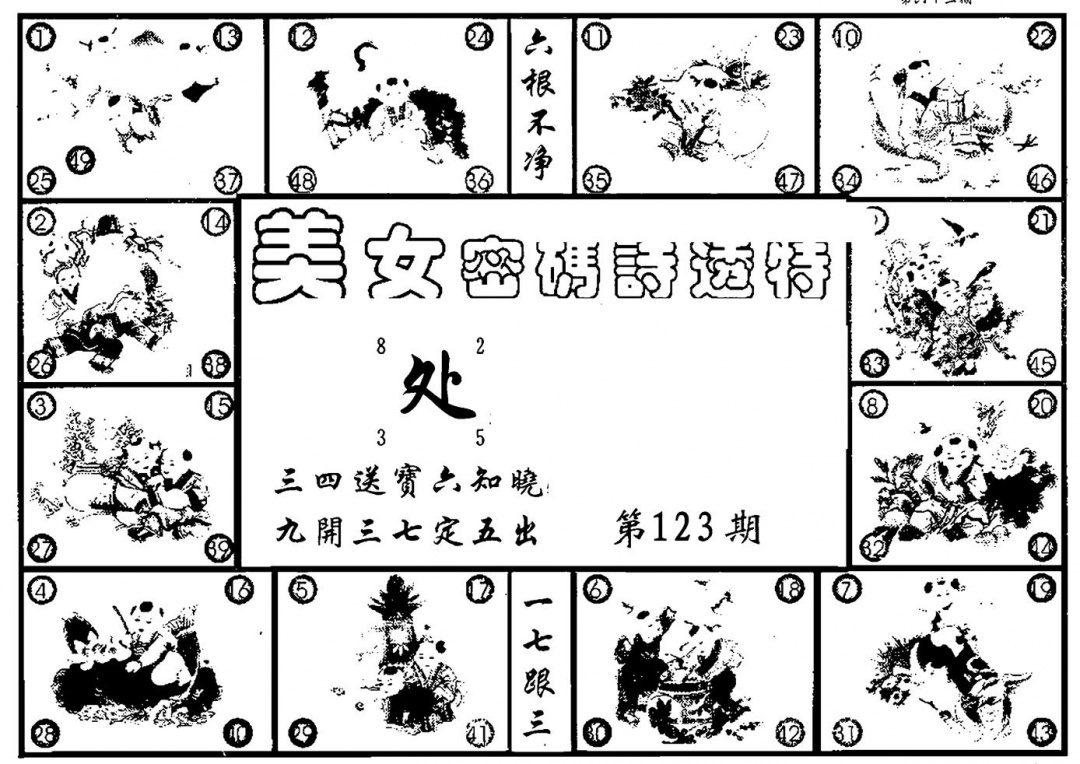 ① ⑬ ㊾ ㉕ ㊲
⑫ ㉔ ㊽ ㊱
六根不净
⑪ ㉓ ㉟ ㊼
⑩ ㉒ ㉞ ㊻
② ⑭ ㉖ ㊳
美女密碼詩透特
㉑ ㉝ ㊺
8 2
处
3 5
③ ⑮ ㉗ ㊴
三四送寶六知曉
九開三七定五出
第123期
⑧ ⑳ ㉜ ㊹
④ ⑯ ㉘ ㊵
⑤ ⑰ ㉙ ㊶
一七跟三
⑥ ⑱ ㉚ ㊷
⑦ ⑲ ㉛ ㊸